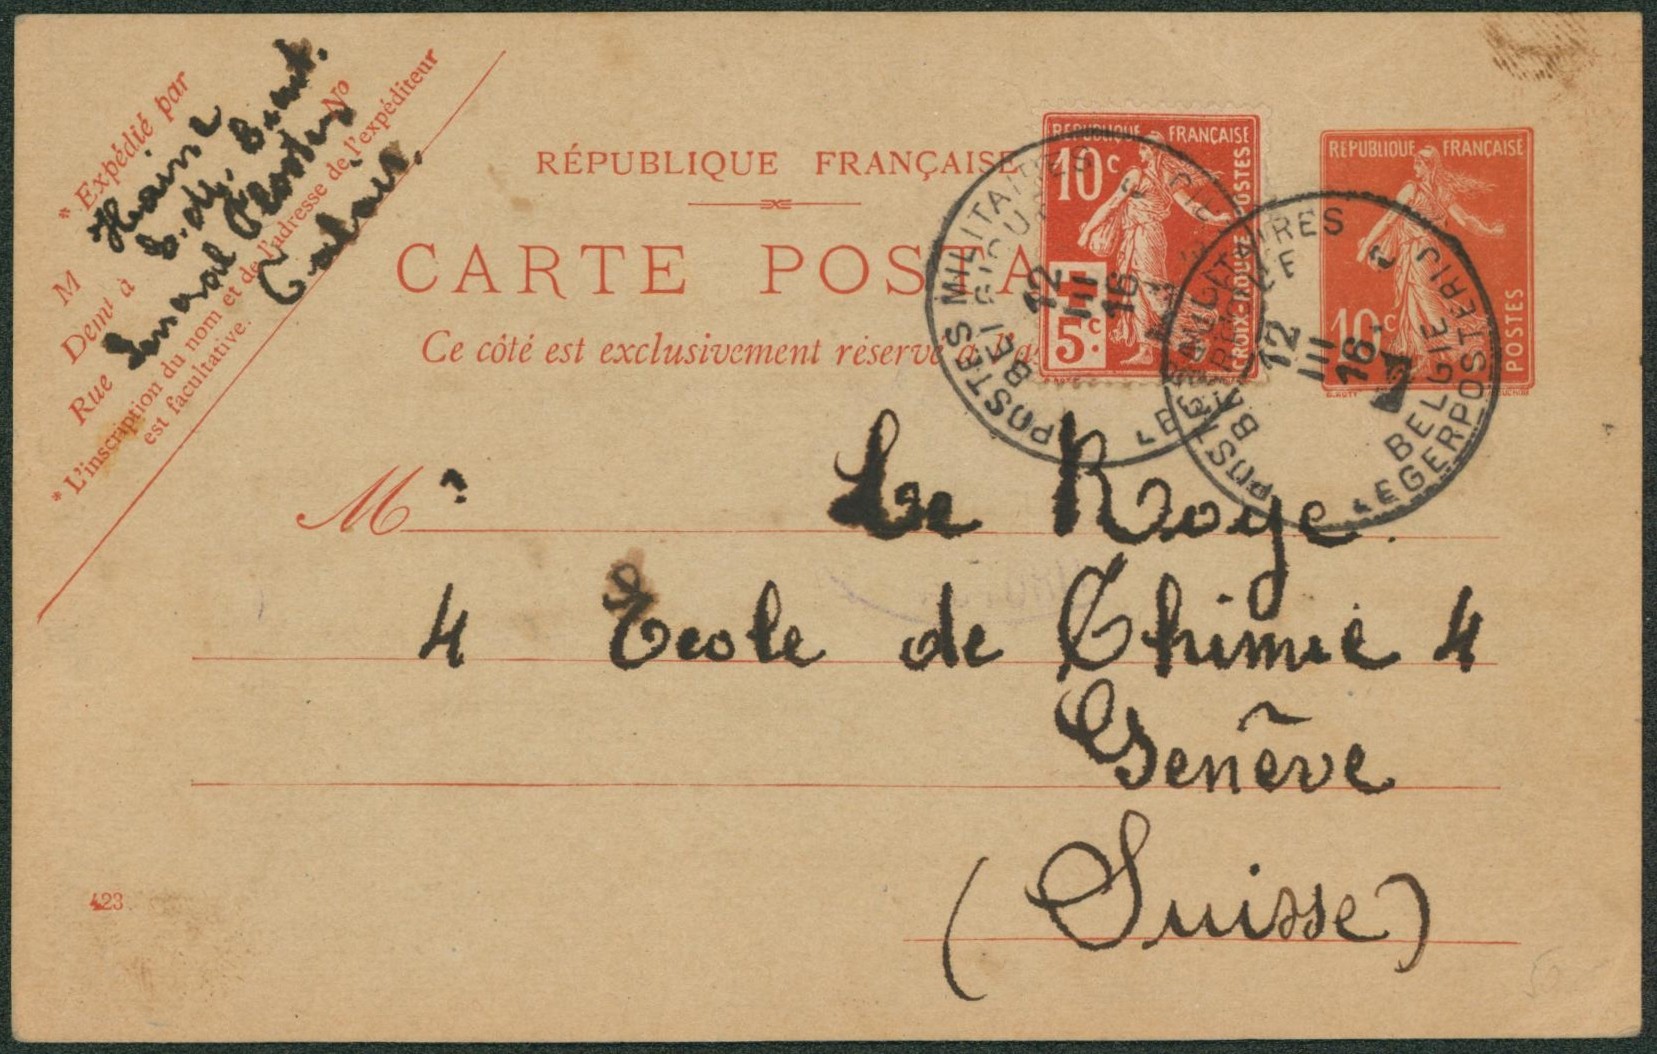 * Expédié par
M Hainè
Demt à
Rue No
* L'inscription du nom et de l'adresse de l'expéditeur
est facultative.
Calais.
RÉPUBLIQUE FRANÇAISE
CARTE POSTA
Ce côté est exclusivement réservé à l'a
REPUBLIQUE FRANÇAISE
10c
POSTES
5c
CROIX-ROUGE
REPUBLIQUE FRANÇAISE
10c
POSTES
POSTES MILITAIRES
BELGIQUE
12
III
16
POSTES MILITAIRES
BELGIQUE
12
III
16
BELGIE
LEGERPOSTERIJ
Mr Le Roye.
4 Ecole de Chimie 4
Genève
(Suisse)
423
50